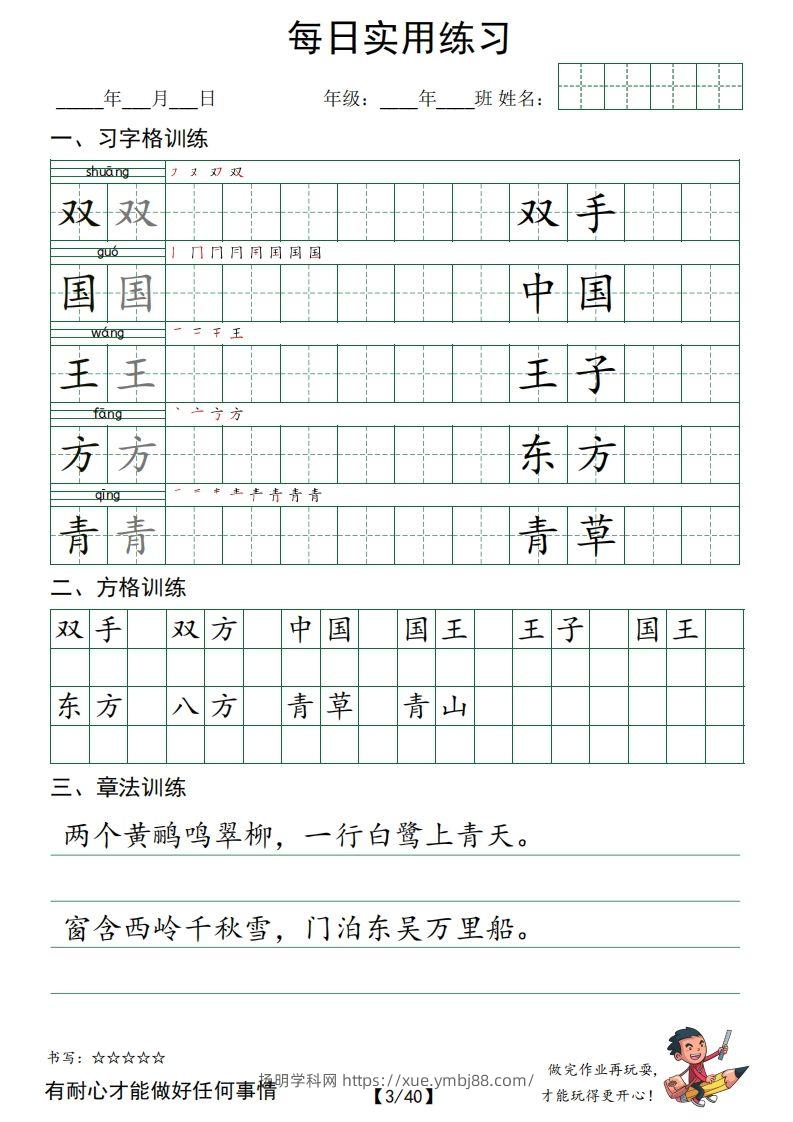 每日实用练习
_____年___月___日 年级：____年____班 姓名：
一、习字格训练
shuāng
双 双 双 手
guó
国 国 中 国
wáng
王 王 王 子
fāng
方 方 东 方
qīng
青 青 青 草
二、方格训练
双手 双方 中国 国王 王子 国王
东方 八方 青草 青山
三、章法训练
两个黄鹂鸣翠柳，一行白鹭上青天。
窗含西岭千秋雪，门泊东吴万里船。
书写：☆☆☆☆☆
有耐心才能做好任何事情
扬明学科网 https://xue.ymbj88.com/
【3/40】
做完作业再玩耍，
才能玩得更开心！